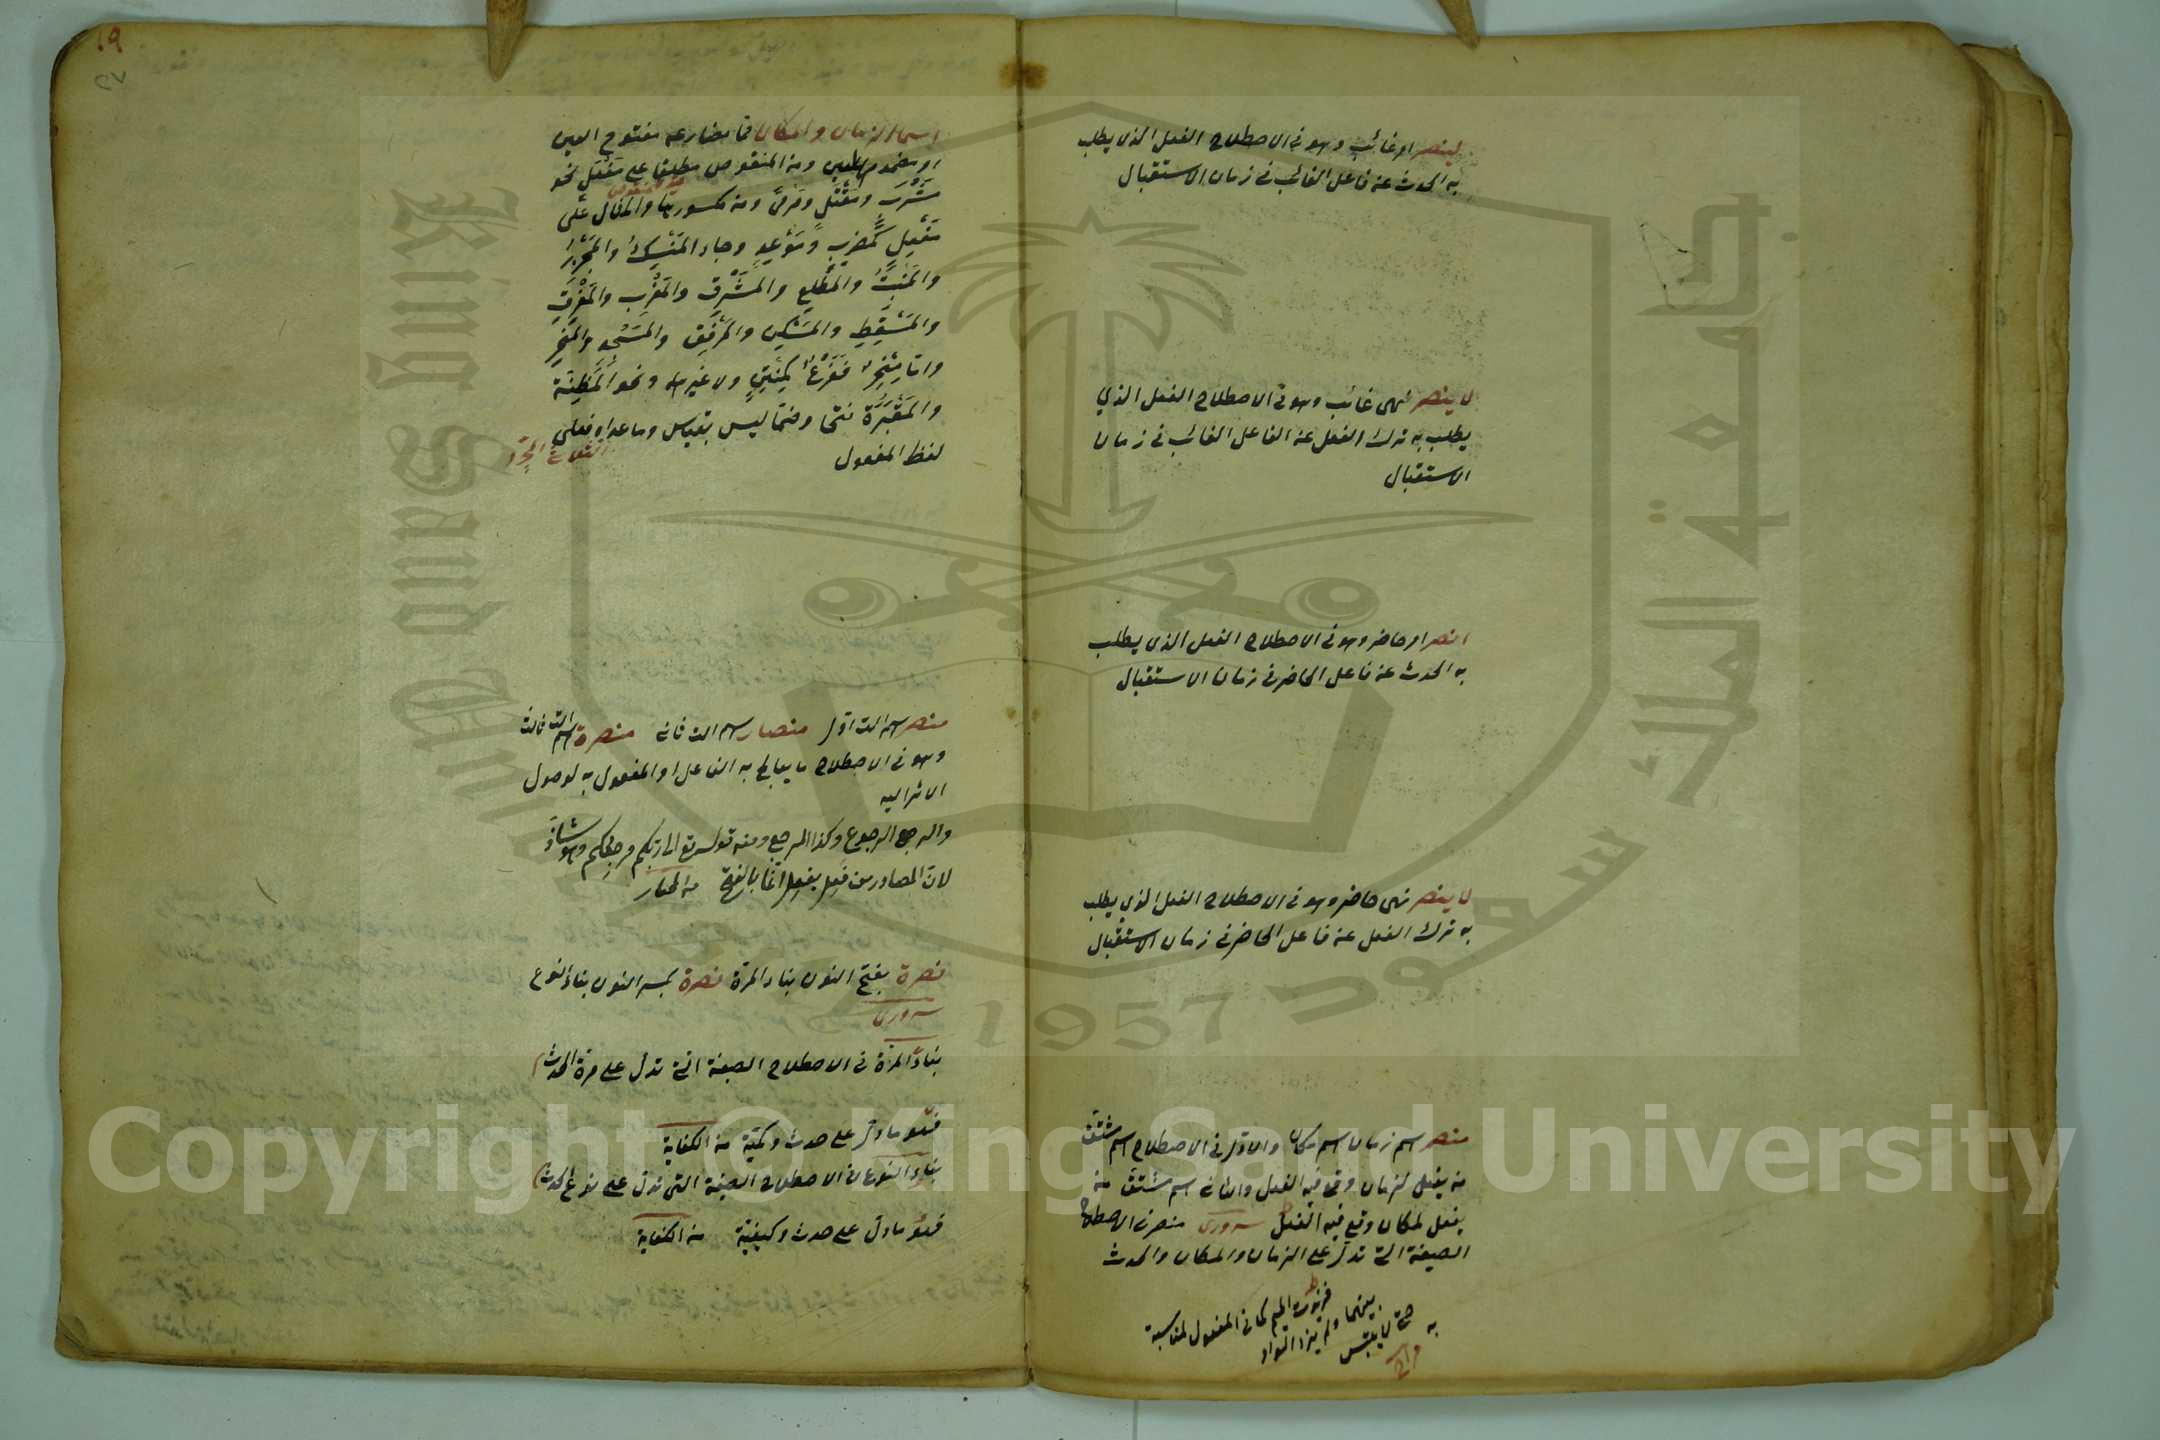 لينصر امر غائب وهو فى الاصطلاح الفعل الذى يطلب
به الحدث عن فاعل الغائب فى زمان الاستقبال
لا ينصر نهى غائب وهو فى الاصطلاح الفعل الذي
يطلب به ترك الفعل عن الفاعل الغائب فى زمان
الاستقبال
انصر امر حاضر وهو فى الاصطلاح الفعل الذى يطلب
به الحدث عن فاعل الحاضر فى زمان الاستقبال
لا ينصر نهى حاضر وهو فى الاصطلاح الفعل الذى يطلب
به ترك الفعل عن فاعل الحاضر فى زمان الاستقبال
منصر اسم زمان اسم مكان والاول فى الاصطلاح اسم مشتق
من يفعل لزمان وقع فيه الفعل والثانى اسم مشتق من
يفعل لمكان وقع فيه الفعل سرورى منصر فى الاصطلاح
الصيغة التى تدل على الزمان والمكان والحدث
فزيدت الميم كما فى المفعول لمناسبة
بينهما ولم يزد الواو
حتى لا يلتبس
به
مراح
١٩
٢٧
اسما الزمان والمكان مما مضارعه مفتوح العين
او مضموم العين ومن المنقوص مطلقا على مَفْعَل نحو
مَشْرَب ومَقْتَل ومَرْمًى ومن مكسورها والمثال على
مَفْعِلٍ كمَضْرِبٍ ومَوْعِدٍ وجاء المَنْسِكُ والمَجْزِرُ
والمَنْبِتُ والمَطْلِعِ والمَشْرِقِ والمَغْرِبِ والمَفْرِقِ
والمَسْقِطِ والمَسْكِنِ والمَرْفِقِ والمَسْجِدِ والمَنْخِرِ
واما مِنْخِرٌ ففَرْعٌ كمِنْتِنٍ ولا غيرها ونحو المَظِنَّة
والمَقْبَرَة فتحا وضما ليس بقياس وما عداه فعلى
الثلاثى المجرد
لفظ المفعول
منصر اسم الت اوّل منصار اسم الت ثانى منصرة اسم الت ثالث
وهو فى الاصطلاح ما يعالج به الفاعل او المفعول به لوصول
الاثر اليه
والرجع الرجوع وكذا المرجع ومنه قوله تع الى ربكم مرجعكم وهو شاذ
لان المصادر من فعل يفعل انما بالفتح من المختار
نصرة بفتح النون بناء المرّة نصرة بكسر النون بناء نوع
سرورى
بناء المرّة فى الاصطلاح الصيغة التى تدل على مرة الحدث
هو ما دل على حدث وكمية من الكفاية
بناء النوع فى الاصطلاح الصيغة التى تدل على نوع الحدث
هو ما دل على حدث وكيفية من الكفاية
King Saud University
جامعة الملك سعود
1957
Copyright © King Saud University